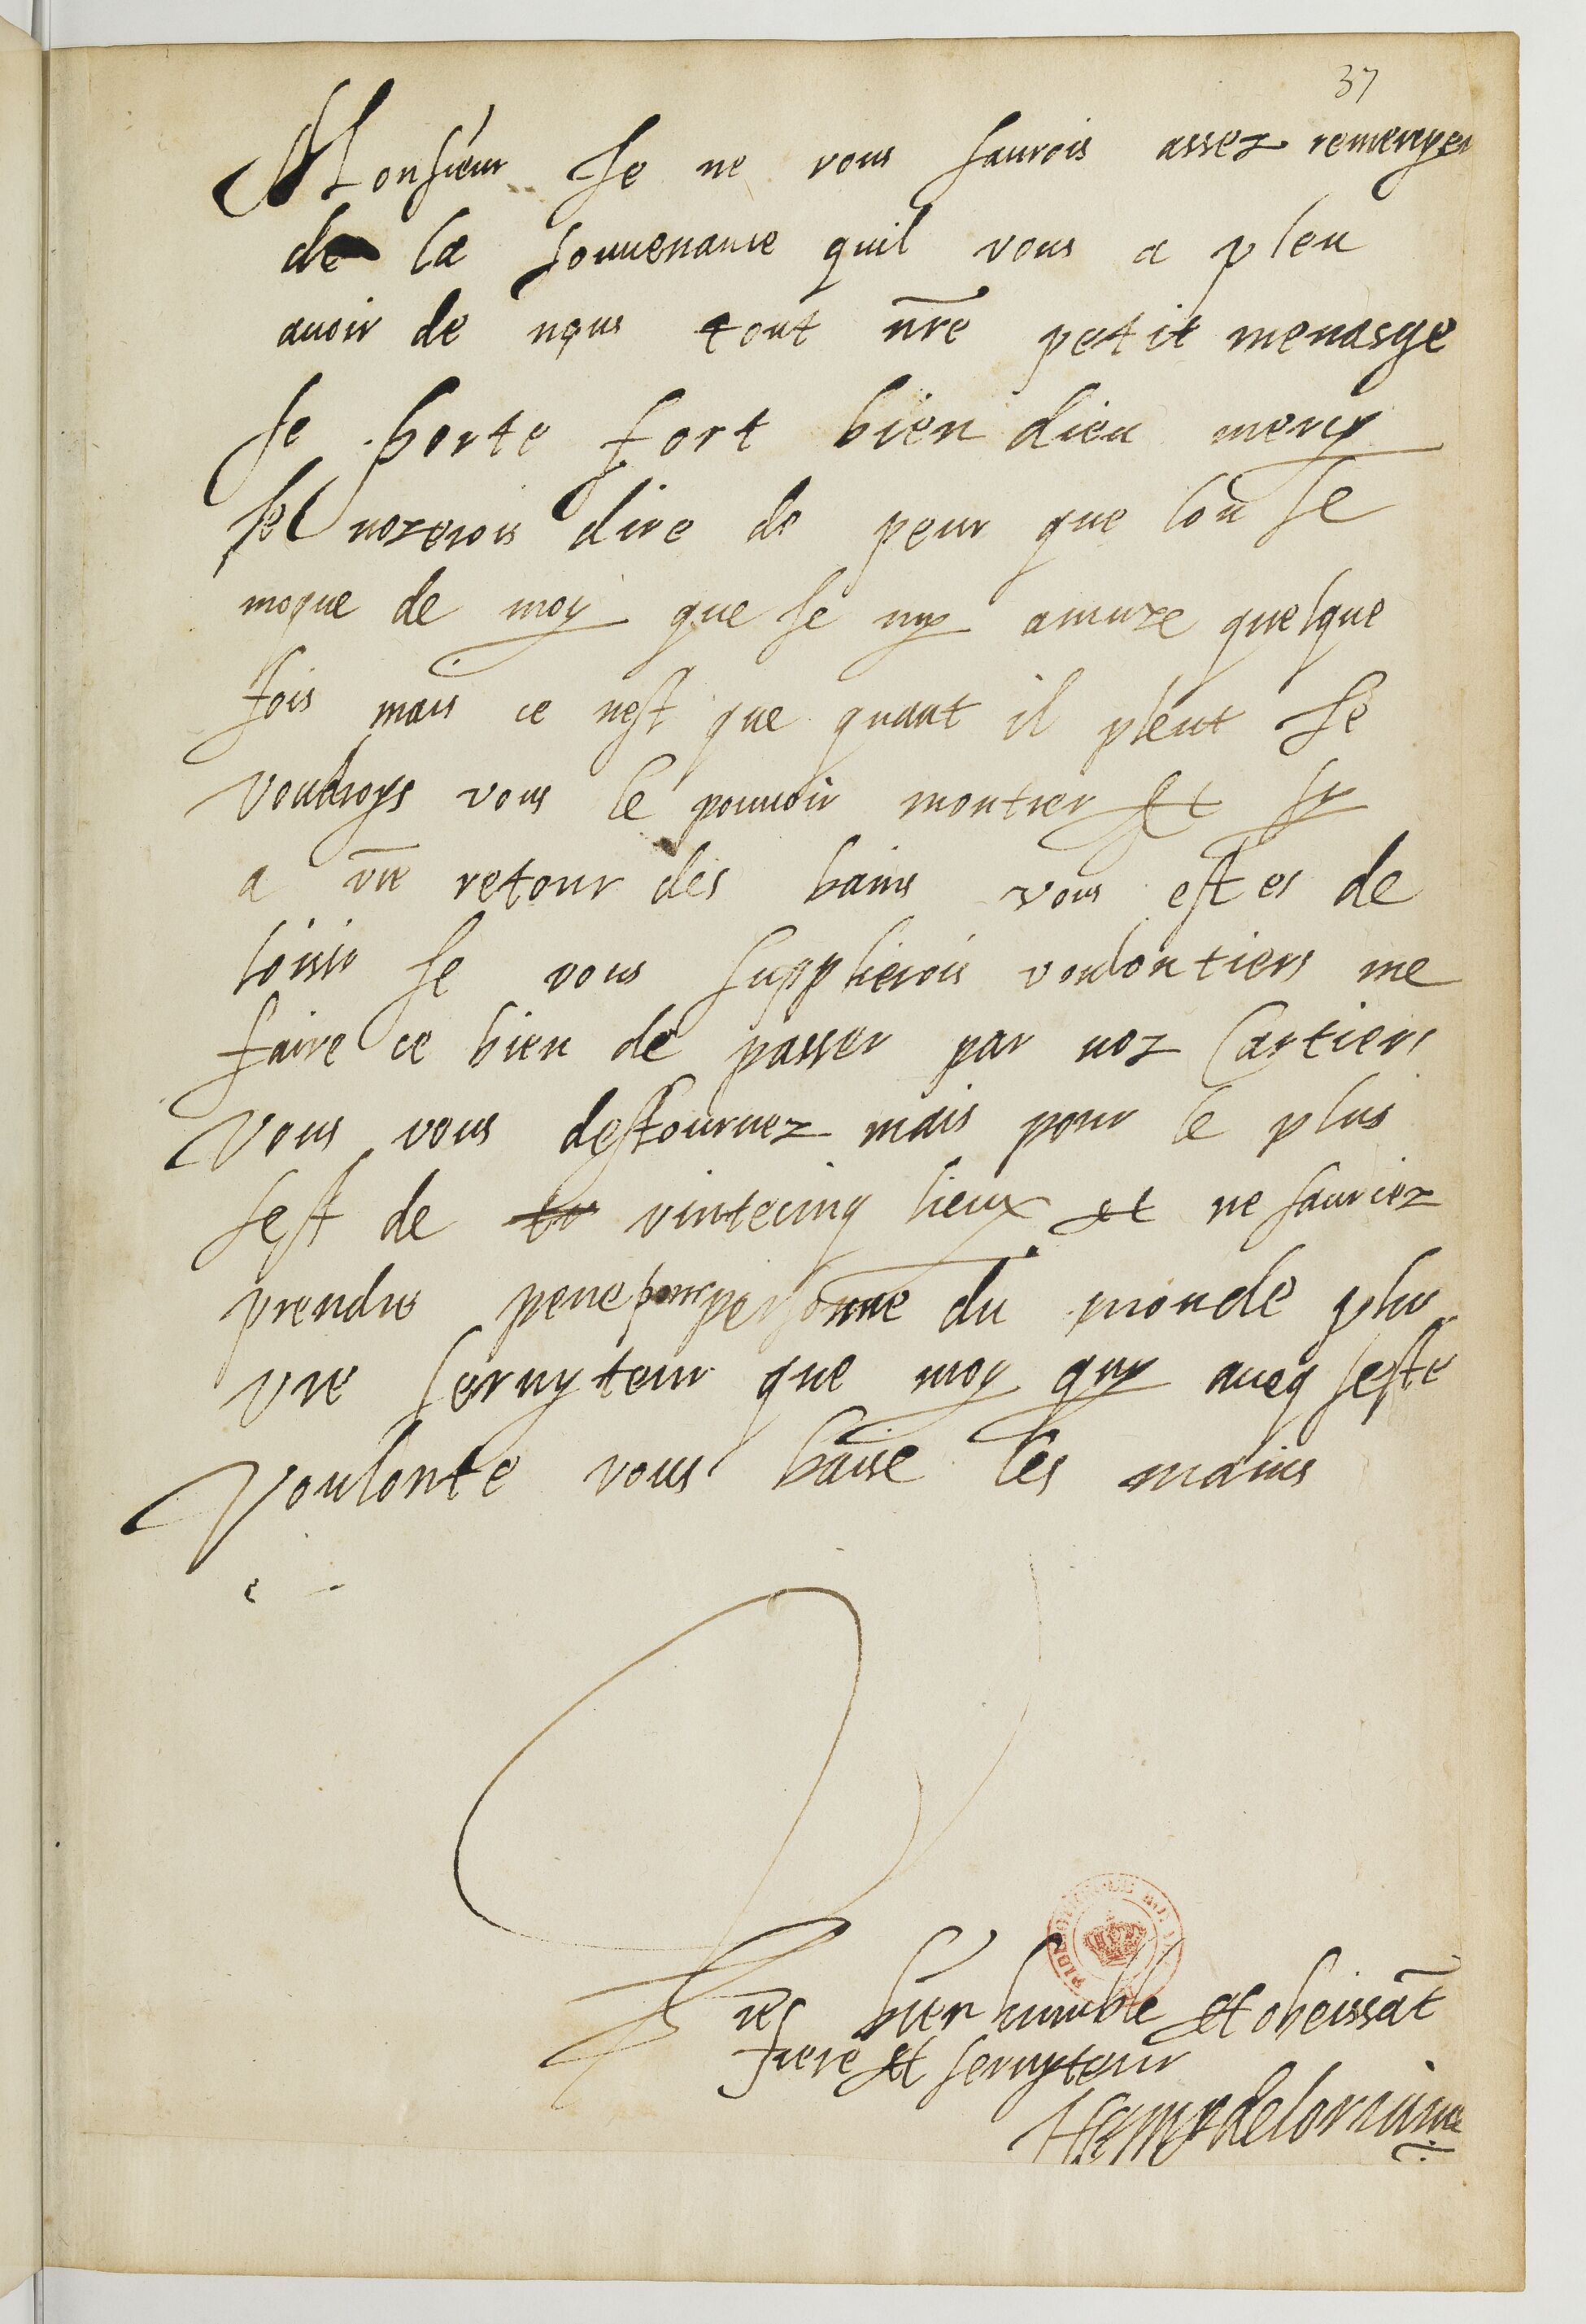 37
Monsieur Je ne vous saurois assez remersyer
de la souvenance quil vous a pleu
avoir de nous tout nr̃e petit menasge
se porte fort bien dieu mercy
Je nozerois dire de peur que lon se
moque de moy que Je my amuze quelque
fois mais ce nest que quant il pleut Je
voudroys vous le pouvoir montrer et sy
a vr̃e retour des bains vous estes de
loisir Je vous supplierois voulontiers me
faire ce bien de passer par noz Cartiers
vous vous destournez mais pour le plus
sest de vintecinq lieux et ne sauriez
prendre pene pour personne du monde plus
vr̃e servyteur que moy quy aveq seste
voulonte vous baise les mains
Vr̃e bien humble et obeissãt
frere et servyteur
Henry de lorraine